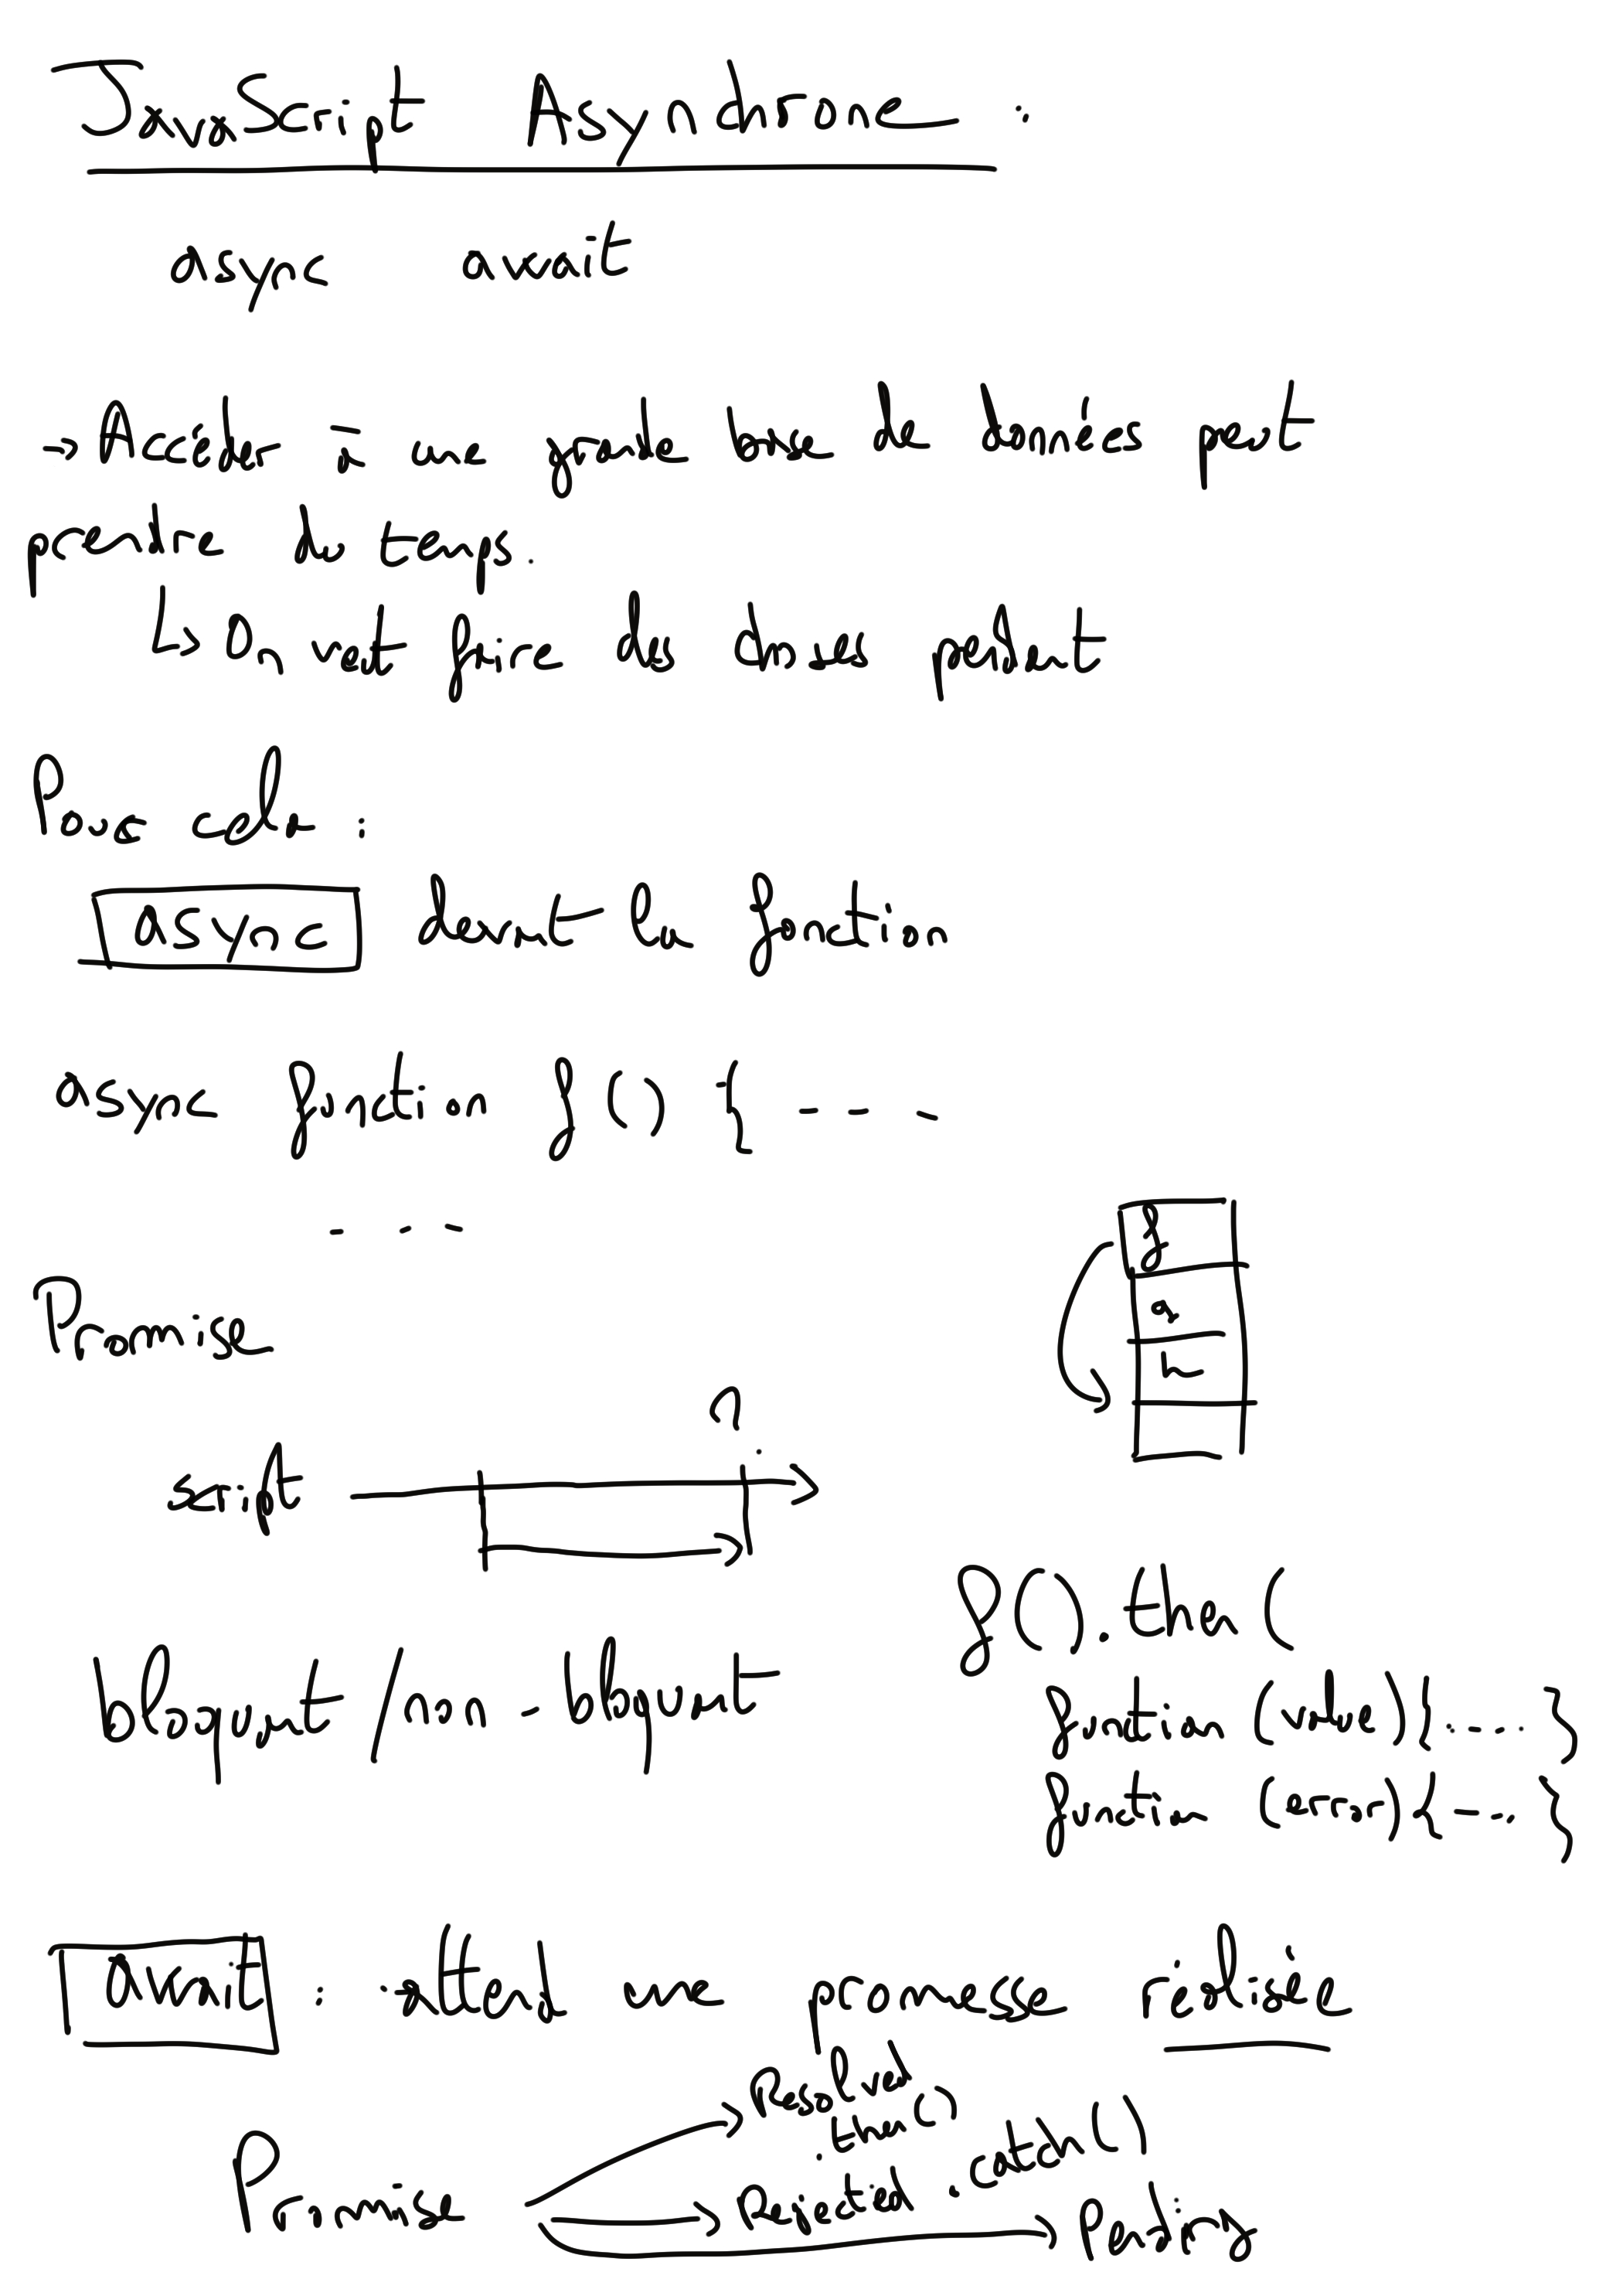 JavaScript Asynchrone :
async await
→ Accéder à une grande base de données peut
prendre du temps.
↳ On veut faire des choses pendant
Pour cela :
async devant la fonction
async function f() { - - - -
- - -
Promise
f
a
h
?
script
f().then(
bloquant / non-bloquant
function (value) {.... }
function (error) {.... }
await : attend une promesse réalisée
Resolved
.then()
Promise
Rejected .catch()
Pending